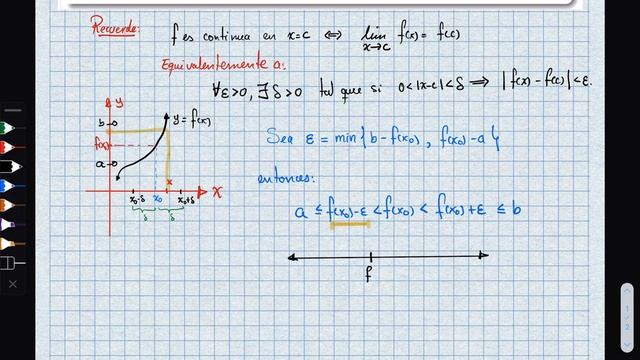 Recuerde: f es continua en x=c ⇔ lim f(x) = f(c)
x→c
Equivalentemente a:
∀ε>0, ∃δ>0 tal que si 0<|x-c|<δ ⟹ |f(x)-f(c)|<ε.
y
b
y=f(x)
f(x₀)
a
x
x₀-δ x₀ x₀+δ
x
δ δ
Sea ε = min{ b-f(x₀), f(x₀)-a }
entonces:
a ≤ f(x₀)-ε < f(x₀) < f(x₀)+ε ≤ b
f
1/2